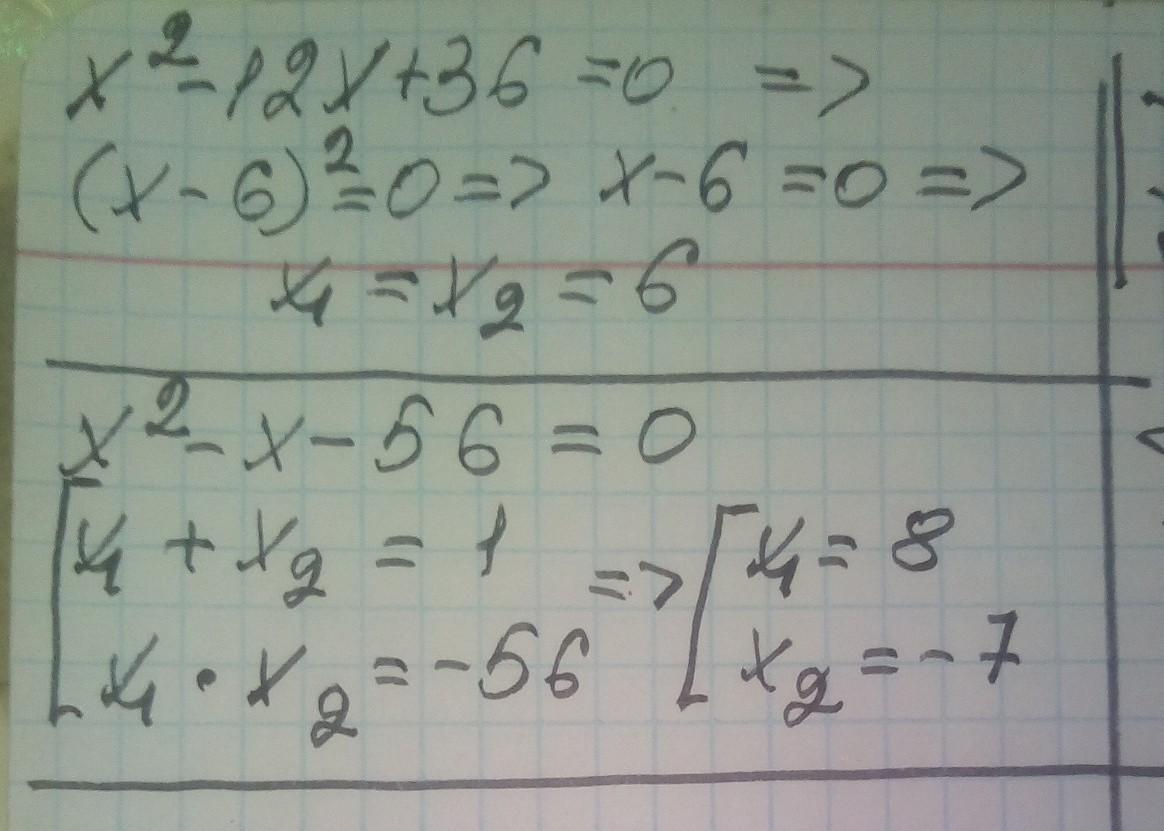 x²-12x+36=0 =>
(x-6)²=0 => x-6=0 =>
x₁=x₂=6
x²-x-56=0
[x₁+x₂=1
x₁·x₂=-56 => [x₁=8
x₂=-7